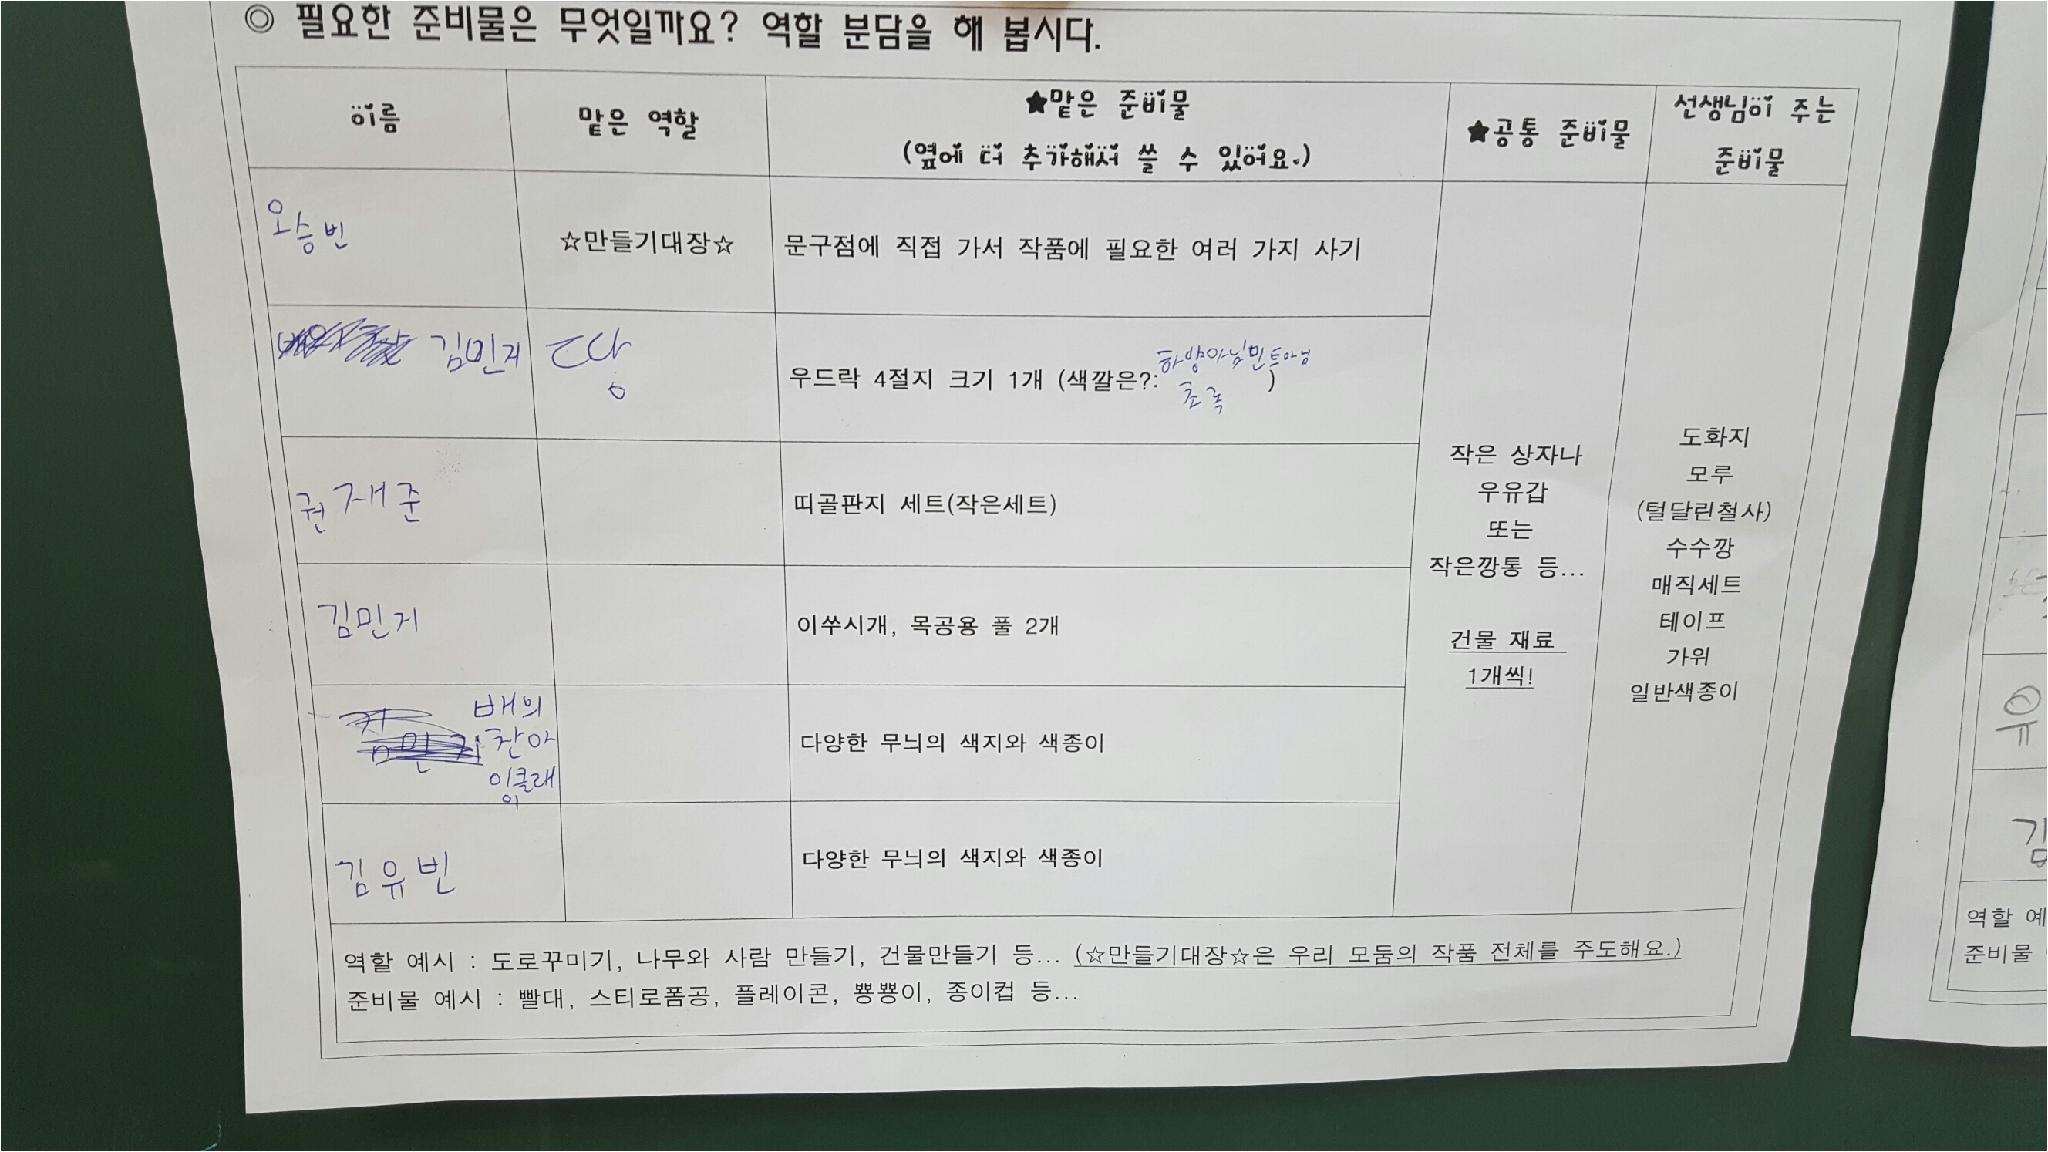 ◎ 필요한 준비물은 무엇일까요? 역할 분담을 해 봅시다.
이름
맡은 역할
★맡은 준비물
(옆에 더 추가해서 쓸 수 있어요.)
★공통 준비물
선생님이 주는
준비물
오승빈
☆만들기대장☆
문구점에 직접 가서 작품에 필요한 여러 가지 사기
김민지
땅
우드락 4절지 크기 1개 (색깔은?: )
하양아님민트아님
초록
권재준
띠골판지 세트(작은세트)
김민지
이쑤시개, 목공용 풀 2개
김민지
배의
찬아
잉클래
이
다양한 무늬의 색지와 색종이
김유빈
다양한 무늬의 색지와 색종이
작은 상자나
우유갑
또는
작은깡통 등...
건물 재료
1개씩!
도화지
모루
(털달린철사)
수수깡
매직세트
테이프
가위
일반색종이
역할 예시 : 도로꾸미기, 나무와 사람 만들기, 건물만들기 등... (☆만들기대장☆은 우리 모둠의 작품 전체를 주도해요.)
준비물 예시 : 빨대, 스티로폼공, 플레이콘, 뿅뿅이, 종이컵 등...
유
김
역할 예
준비물